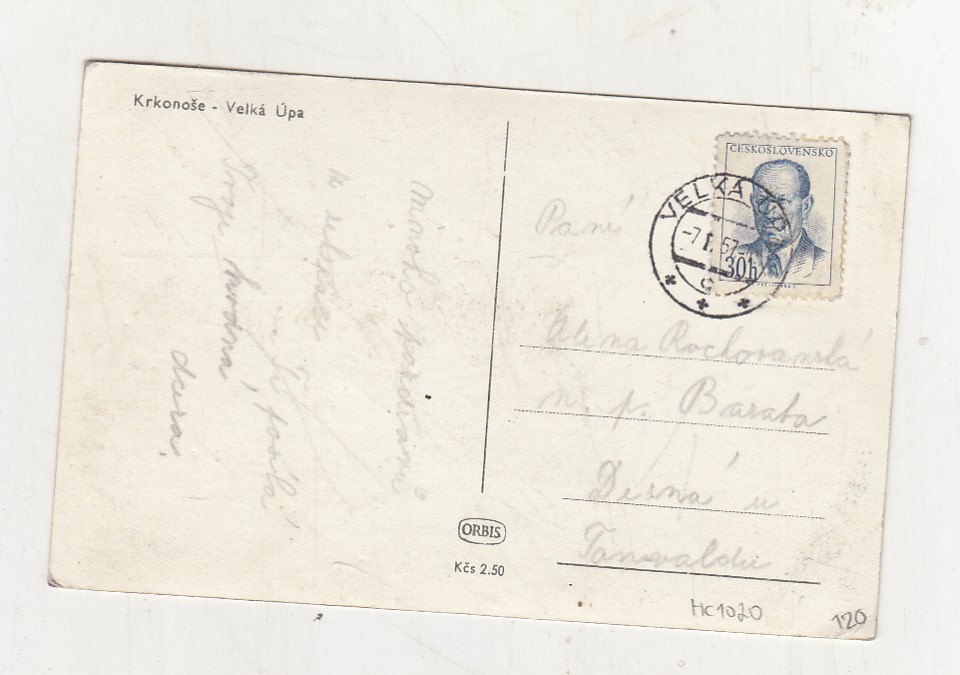 Krkonoše - Velká Úpa
ČESKOSLOVENSKO
30h
VELKÁ ÚPA
-7.I.57-
Paní
n. p. Barata
Desná u
Tanvaldu
Mnoho pozdravů
k
Ti posílá
Tvoje hodná
dcera.
ORBIS
Kčs 2.50
HC1020
120